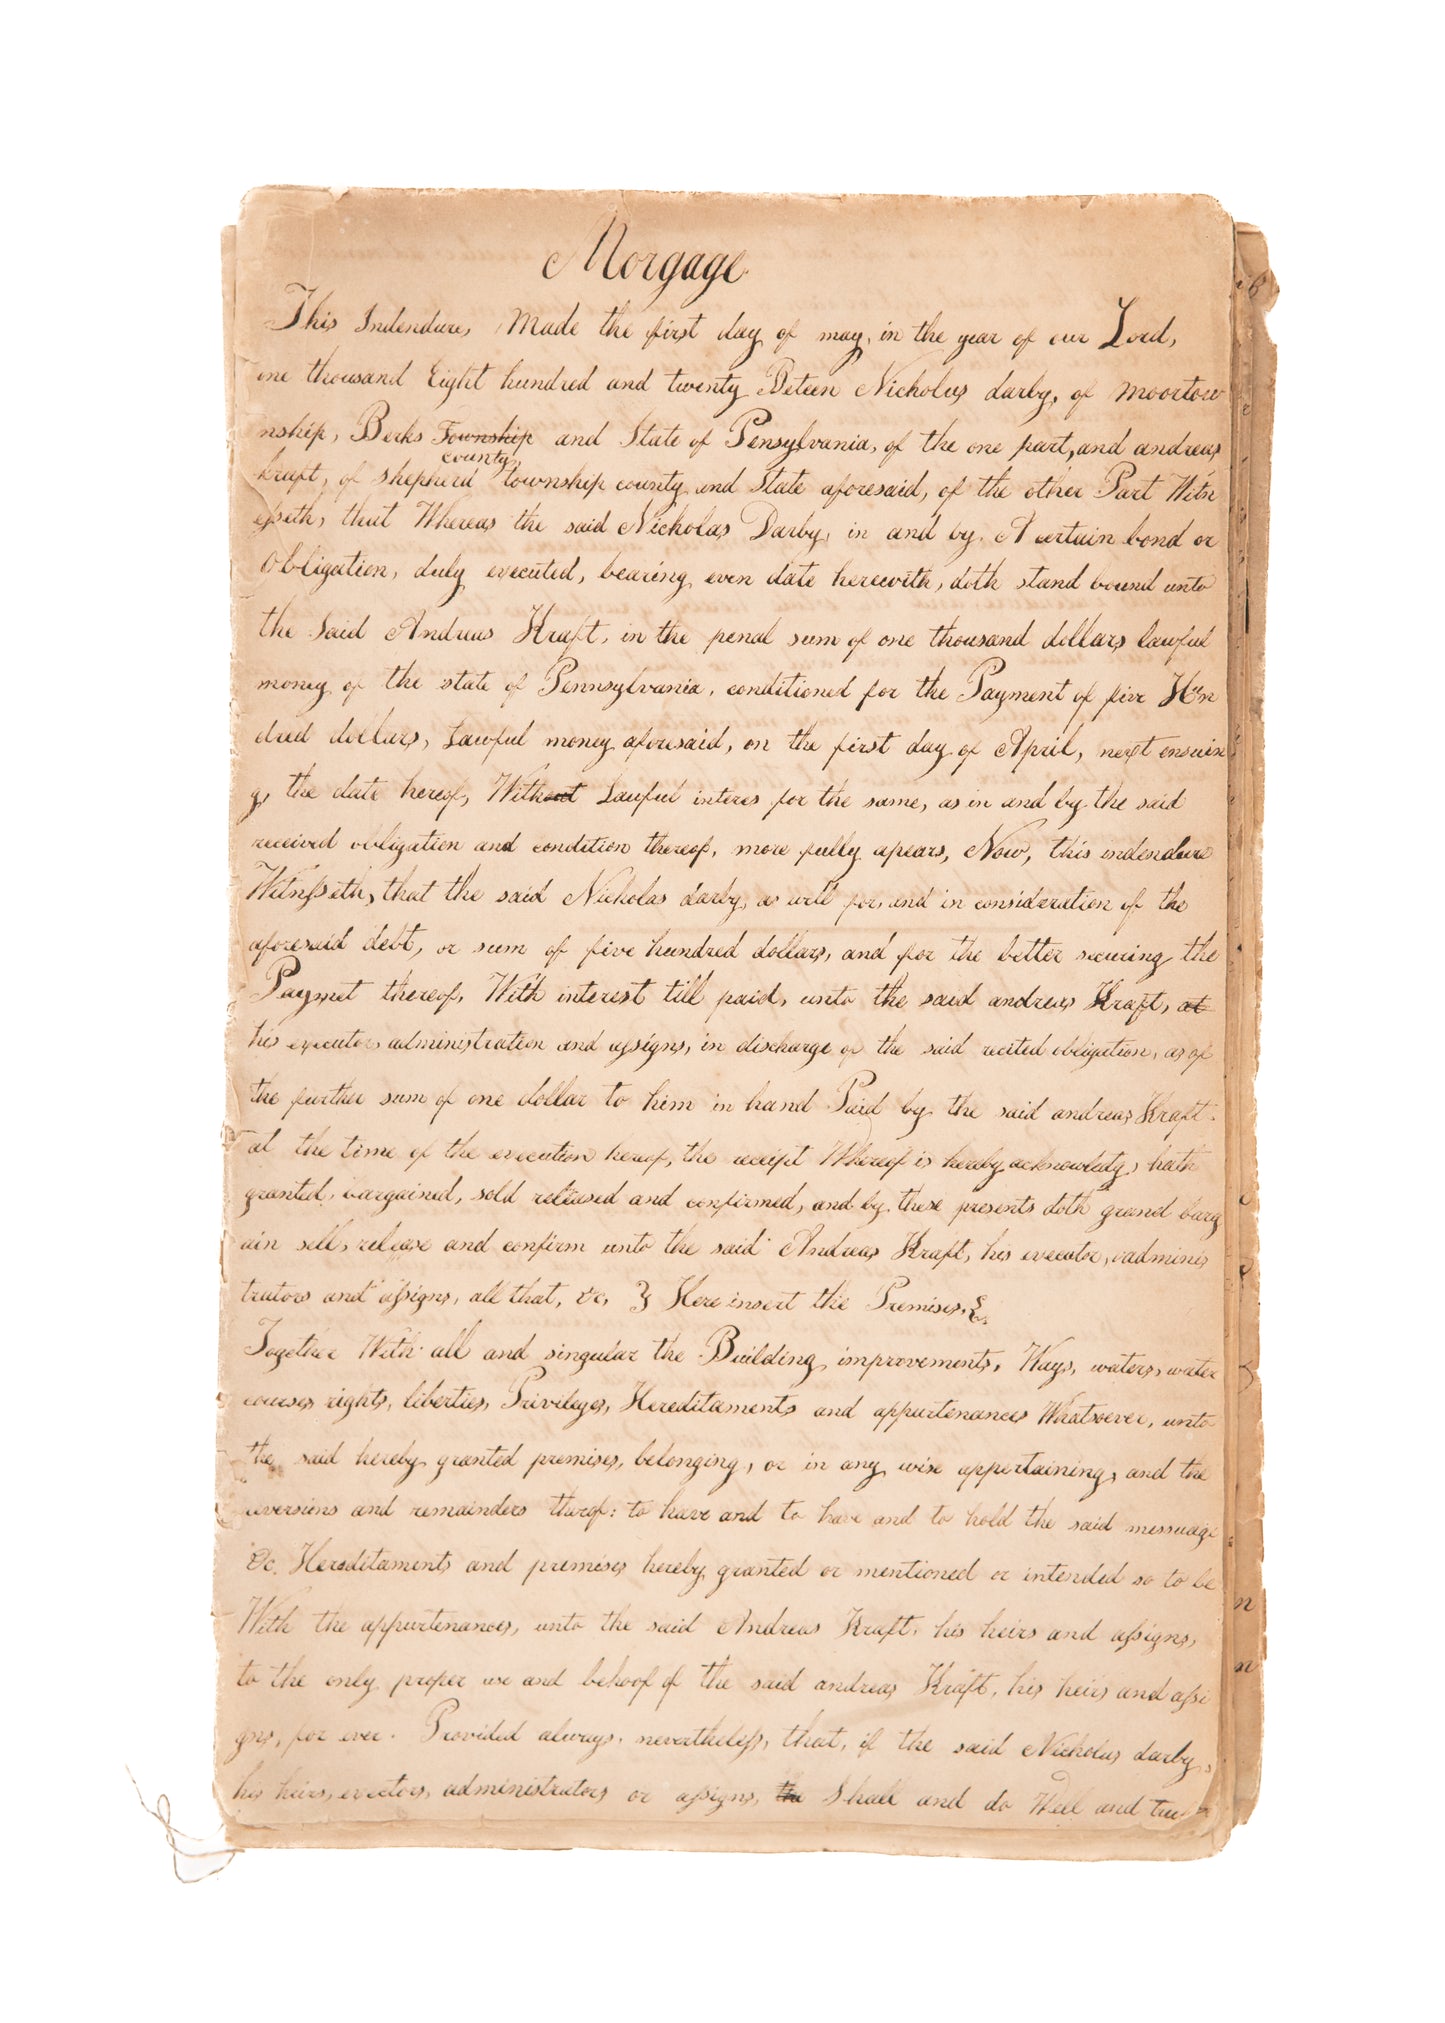 Morgage
This Indendure, Made the first day of may, in the year of our Lord,
one thousand Eight hundred and twenty Beteen Nicholas darby, of moortow
nship, Berks Township and State of Pensylvania, of the one part, and andreas
county
kraft, of shepherd township county and State aforesaid, of the other Part Witn
esseth, that Whereas the said Nicholas Darby, in and by A certain bond or
Obligation, duly executed, bearing even date herewith, doth stand bound unto
the Said Andreas Kraft, in the penal sum of one thousand dollars lawful
money of the state of Pennsylvania, conditioned for the Payment of five Hun
dred dollars, Lawful money aforesaid, on the first day of April, next ensuin
g, the date hereof, Without Lawful interes for the same, as in and by the said
received obligation and condition thereof, more fully apears, Now, this indendure
Witnesseth, that the said Nicholas darby, as well for, and in consideration of the
aforesaid debt, or sum of five hundred dollars, and for the better securing the
Paymet thereof, With interest till paid, unto the said andreas Kraft, at
his executor, administration and assigns, in discharge of the said recited obligation, as of
the further sum of one dollar to him in hand Paid by the said andreas Kraft
at the time of the execution hereof, the receipt Whereof is hereby acknowledg, hath
granted, bargained, sold released and confirmed, and by these presents doth grand barg
ain sell, release and confirm unto the said Andreas Kraft, his executor, adminis
trators and assigns, all that, &c, } Here insert the Premises, {
Together With all and singular the Building improvements, Ways, waters, water
courses rights, liberties, Privileges, Hereditaments and appurtenances Whatsoever, unto
the said hereby granted premises, belonging, or in any wise appertaining, and the
reversions and remainders therof: to have and to have and to hold the said messuage
&c. Hereditaments and premises hereby granted or mentioned or intended so to be
With the appurtenances, unto the said Andreas Kraft, his heirs and assigns,
to the only proper use and behoof of the said andreas Kraft, his heirs and assi
gns, for ever. Provided always, nevertheless, that, if the said Nicholas darby,
his heirs, exectors, administrators or assigns, the Shall and do Well and